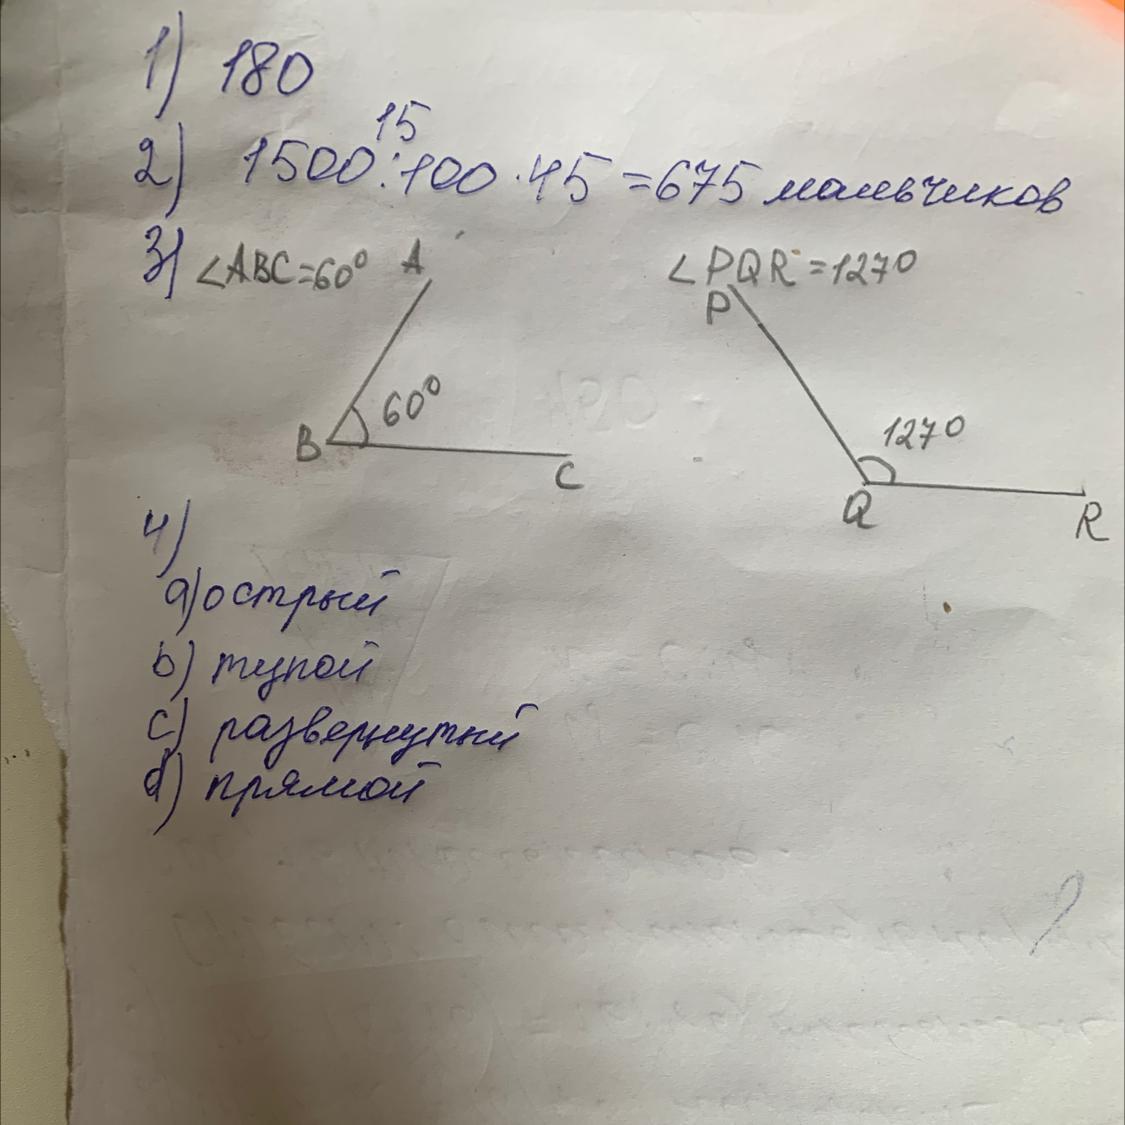 1) 180
15
2) 1500:100·45=675 мальчиков
3) ∠ABC=60° A ∠PQR=127°
P
60° 127°
B C Q R
4)
a) острый
b) тупой
c) развернутый
d) прямой